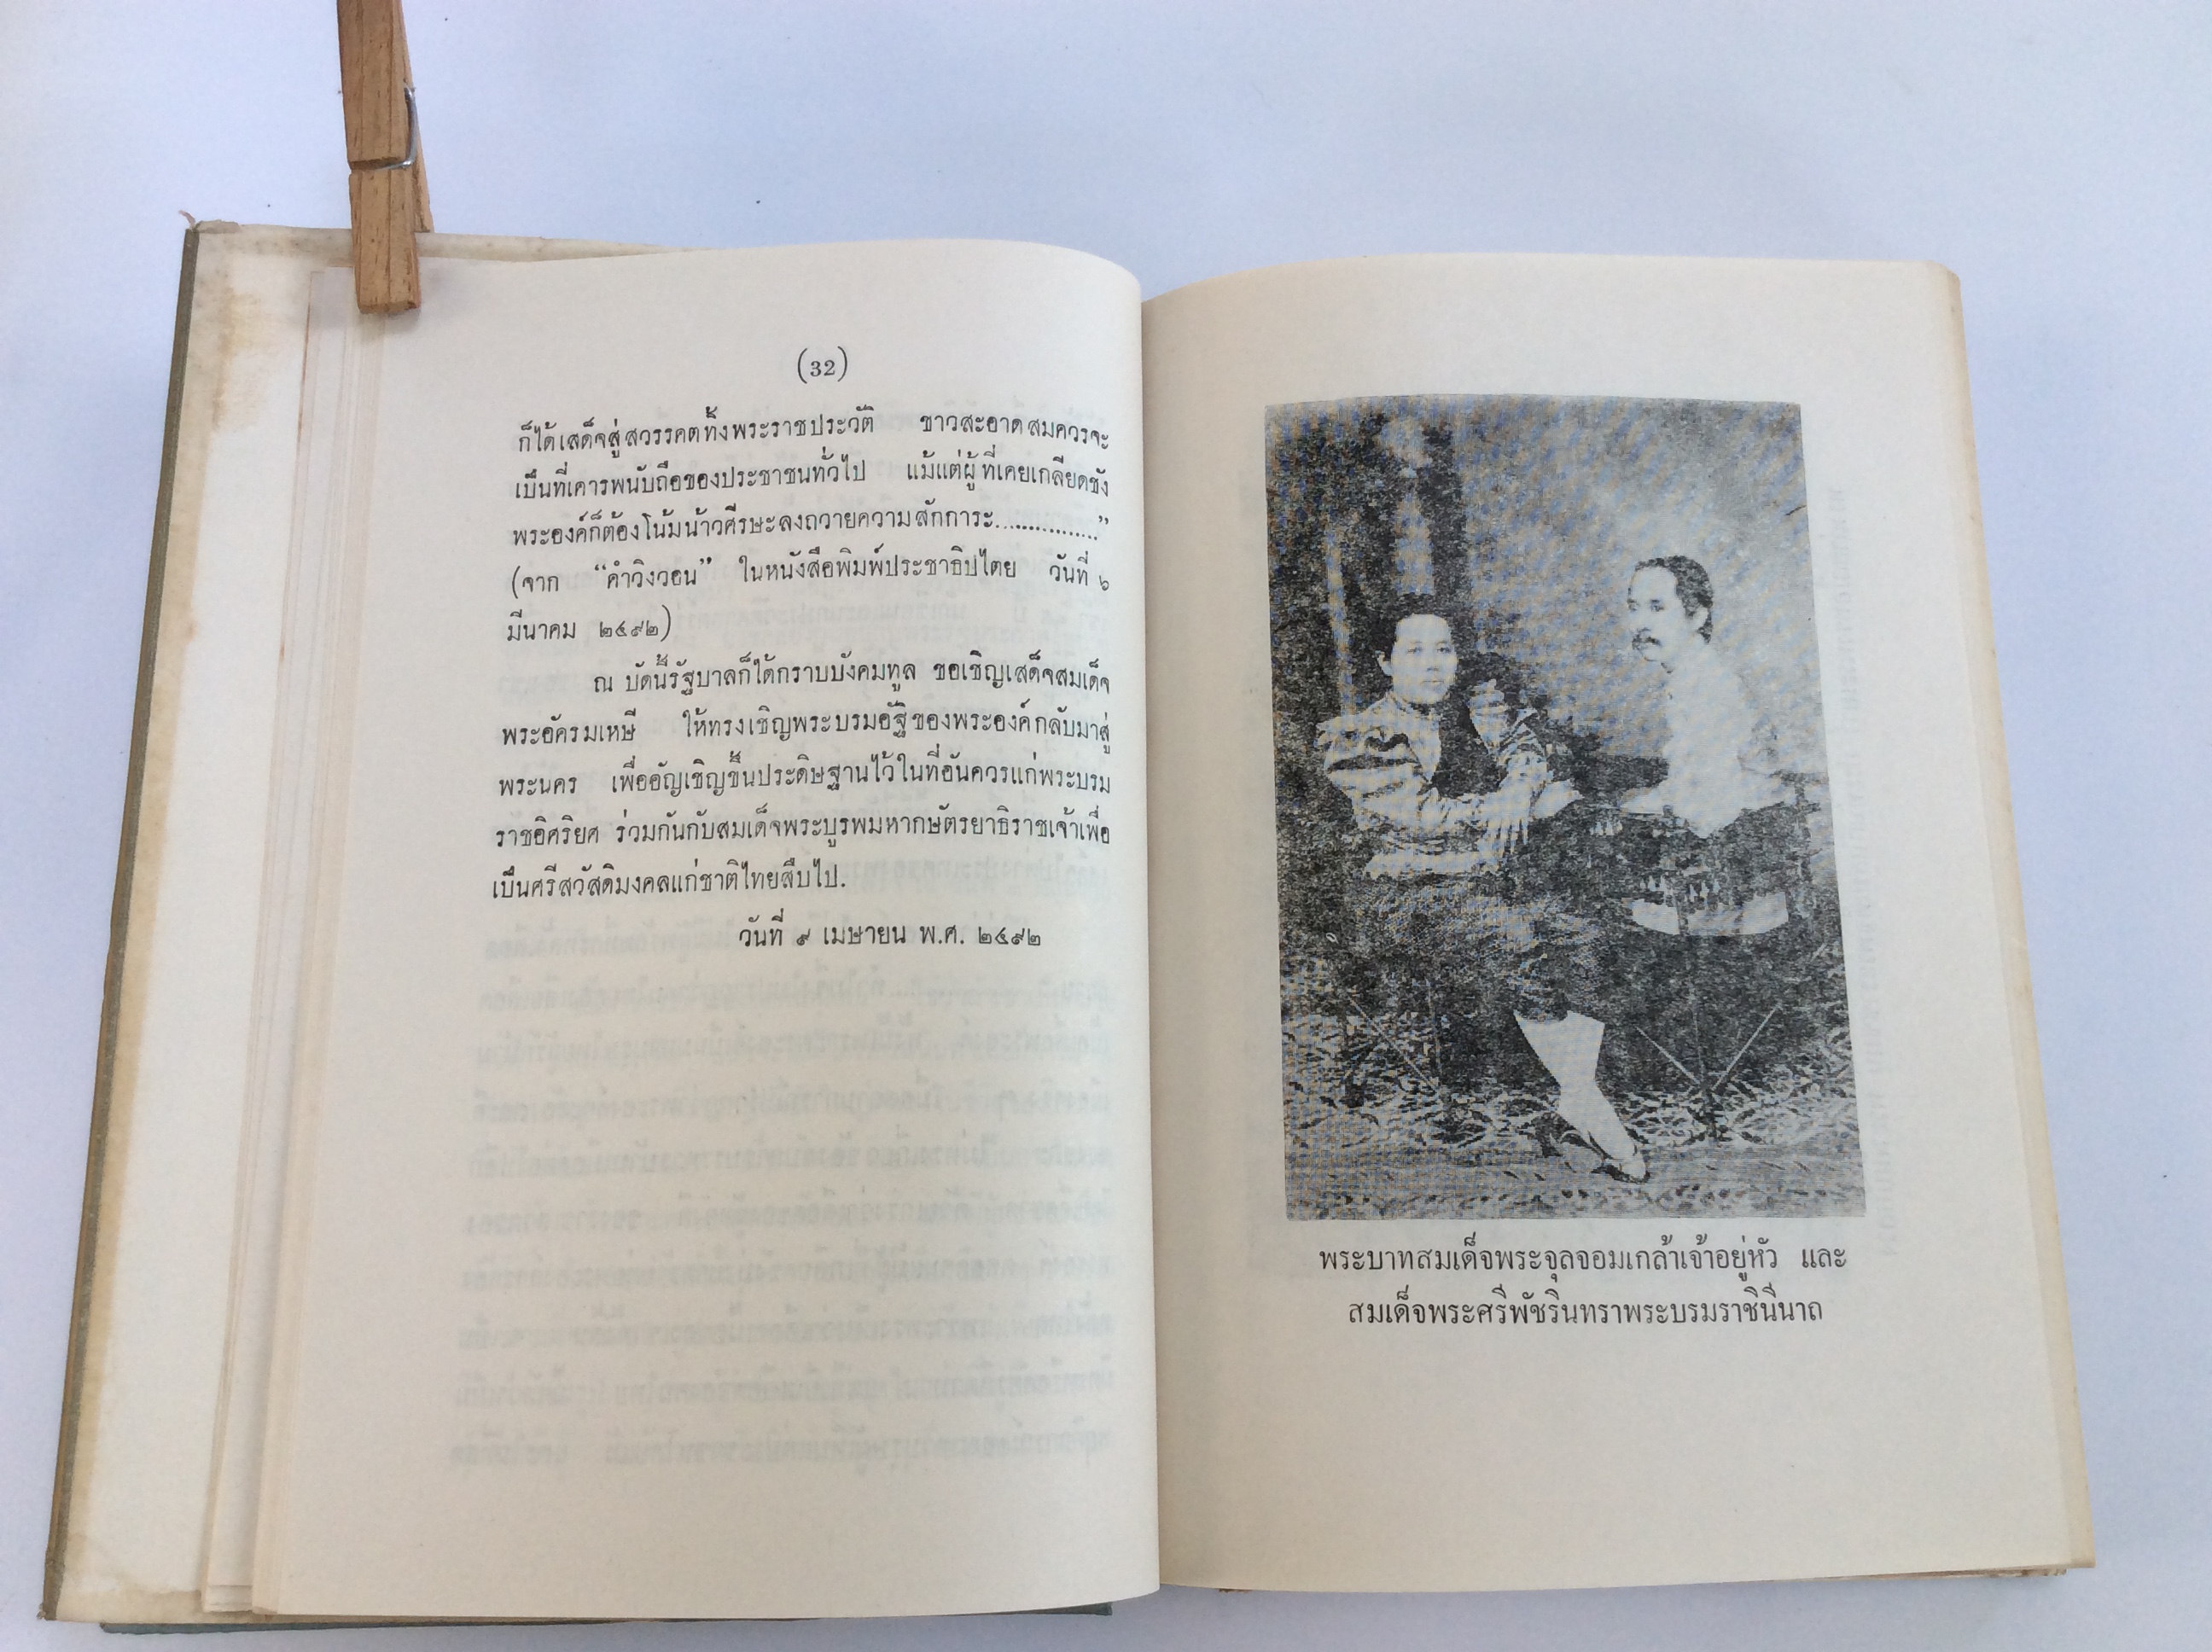 (32)
ก็ได้เสด็จสู่สวรรคตทั้งพระราชประวัติ ขาวสะอาดสมควรจะ
เป็นที่เคารพนับถือของประชาชนทั่วไป แม้แต่ผู้ที่เคยเกลียดชัง
พระองค์ก็ต้องโน้มน้าวศีรษะลงถวายความสักการะ..............”
(จาก “คำวิงวอน” ในหนังสือพิมพ์ประชาธิปไตย วันที่ ๖
มีนาคม ๒๔๙๒)
ณ บัดนี้รัฐบาลก็ได้กราบบังคมทูล ขอเชิญเสด็จสมเด็จ
พระอัครมเหษี ให้ทรงเชิญพระบรมอัฐิของพระองค์กลับมาสู่
พระนคร เพื่ออัญเชิญขึ้นประดิษฐานไว้ในที่อันควรแก่พระบรม
ราชอิศริยศ ร่วมกันกับสมเด็จพระบูรพมหากษัตรยาธิราชเจ้าเพื่อ
เป็นศรีสวัสดิมงคลแก่ชาติไทยสืบไป.
วันที่ ๙ เมษายน พ.ศ. ๒๔๙๒
พระบาทสมเด็จพระจุลจอมเกล้าเจ้าอยู่หัว และ
สมเด็จพระศรีพัชรินทราพระบรมราชินีนาถ